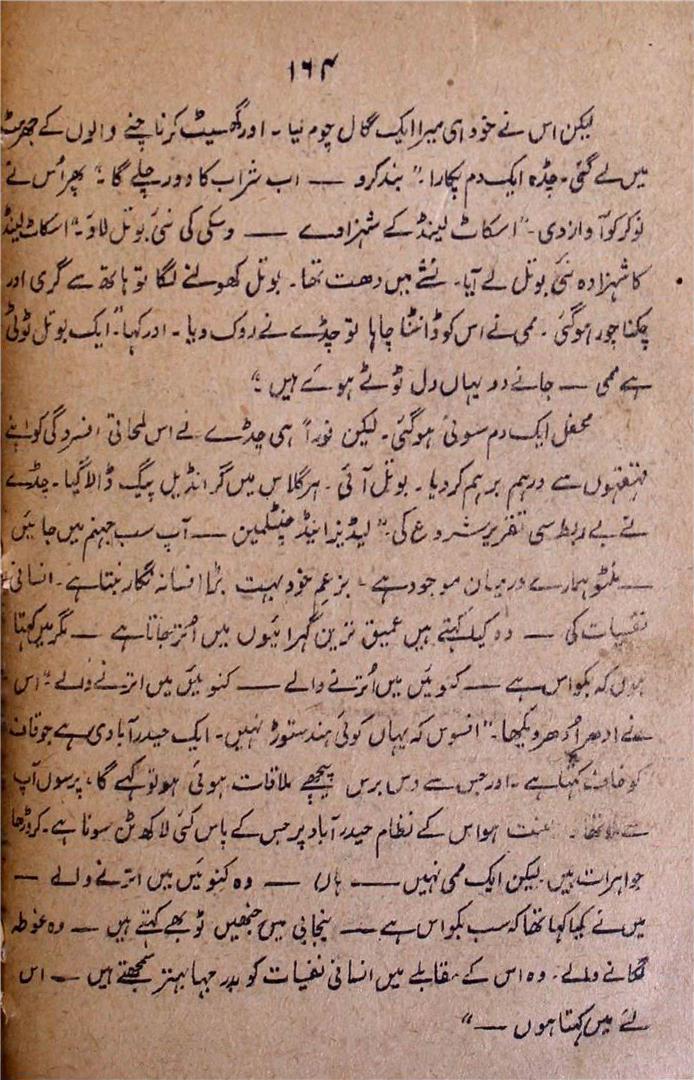 ۱۶۴
لیکن اس نے خود ہی میرا ایک گال چوم لیا۔ اور گھسیٹ کر ناچنے والوں کے جھرمٹ
میں لے گئی۔ چڈہ ایک دم پکارا۔ "بند کرو — اب شراب کا دور چلے گا۔" پھر اُس نے
نوکر کو آواز دی۔ "اسکاٹ لینڈ کے شہزادے — وسکی کی نئی بوتل لاؤ۔" اسکاٹ لینڈ
کا شہزادہ نئی بوتل لے آیا۔ نشے میں دھت تھا۔ بوتل کھولنے لگا تو ہاتھ سے گری اور
چکنا چور ہو گئی۔ ممی نے اس کو ڈانٹنا چاہا تو چڈے نے روک دیا۔ اور کہا۔ "ایک بوتل ٹوٹی
ہے ممی — جانے دو یہاں دل ٹوٹے ہوئے ہیں۔"
محفل ایک دم سونی ہو گئی۔ لیکن فوراً ہی چڈے نے اس لمحاتی افسردگی کو اپنے
قہقہوں سے درہم برہم کر دیا۔ بوتل آئی۔ ہر گلاس میں گرانڈیل پیگ ڈالا گیا۔ چڈے
نے بے ربط سی تقریر شروع کی۔ "لیڈیز اینڈ جنٹلمین — آپ سب جہنم میں جائیں
— منٹو ہمارے درمیان موجود ہے۔ بزعم خود بہت بڑا افسانہ نگار بنتا ہے۔ انسانی
نفسیات کی — وہ کیا کہتے ہیں عمیق ترین گہرائیوں میں اُتر جاتا ہے — مگر میں کہتا
ہوں کہ بکواس ہے — کنوئیں میں اُترنے والے — کنوئیں میں اترنے والے۔" اس
نے ادھر اُدھر دیکھا۔ "افسوس کہ یہاں کوئی ہندستوڑ نہیں۔ ایک حیدرآبادی ہے جو قاف
کو خاف کہتا ہے۔ اور جس سے دس برس پیچھے ملاقات ہوئی ہو تو کہے گا، پرسوں آپ
سے ملا تھا۔ لعنت ہو اس کے نظام حیدرآباد پر جس کے پاس کئی لاکھ ٹن سونا ہے۔ کروڑہا
جواہرات ہیں۔ لیکن ایک ممی نہیں — ہاں — وہ کنوئیں میں اترنے والے —
میں نے کیا کہا تھا کہ سب بکواس ہے — پنجابی میں جنھیں ٹوبھے کہتے ہیں — وہ غوطہ
لگانے والے۔ وہ اس کے مقابلے میں انسانی نفسیات کو بدرجہا بہتر سمجھتے ہیں — اس
لئے میں کہتا ہوں —"